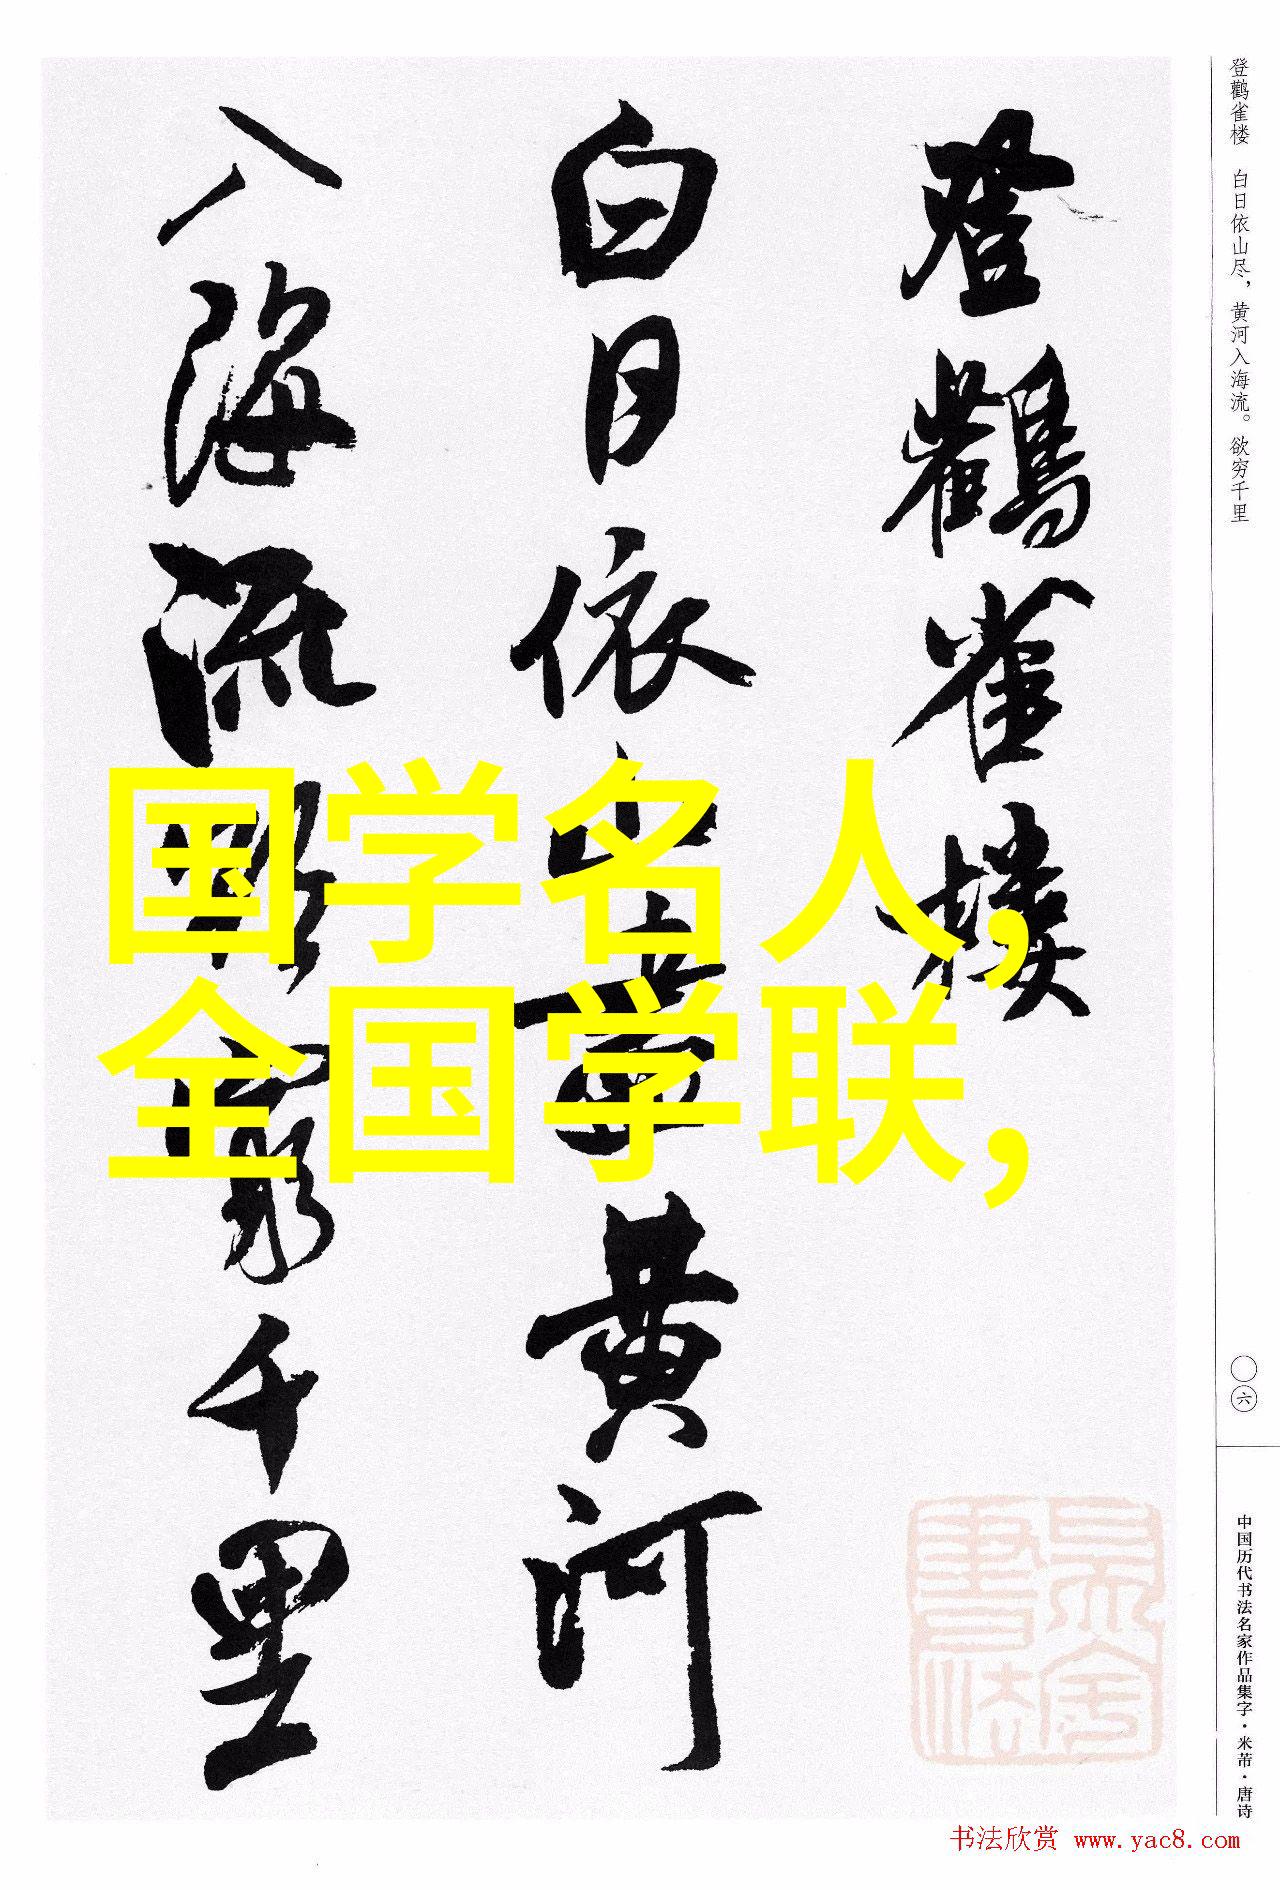 登鹳雀楼 白日依山尽，黄河入海流。欲穷千里
〇六
中国历代书法名家作品集字·米芾·唐诗
登鸛雀樓
白日依山盡黄河
入海流欲窮千里
国学名人，
全国学联，
书法欣赏 www.yac8.com